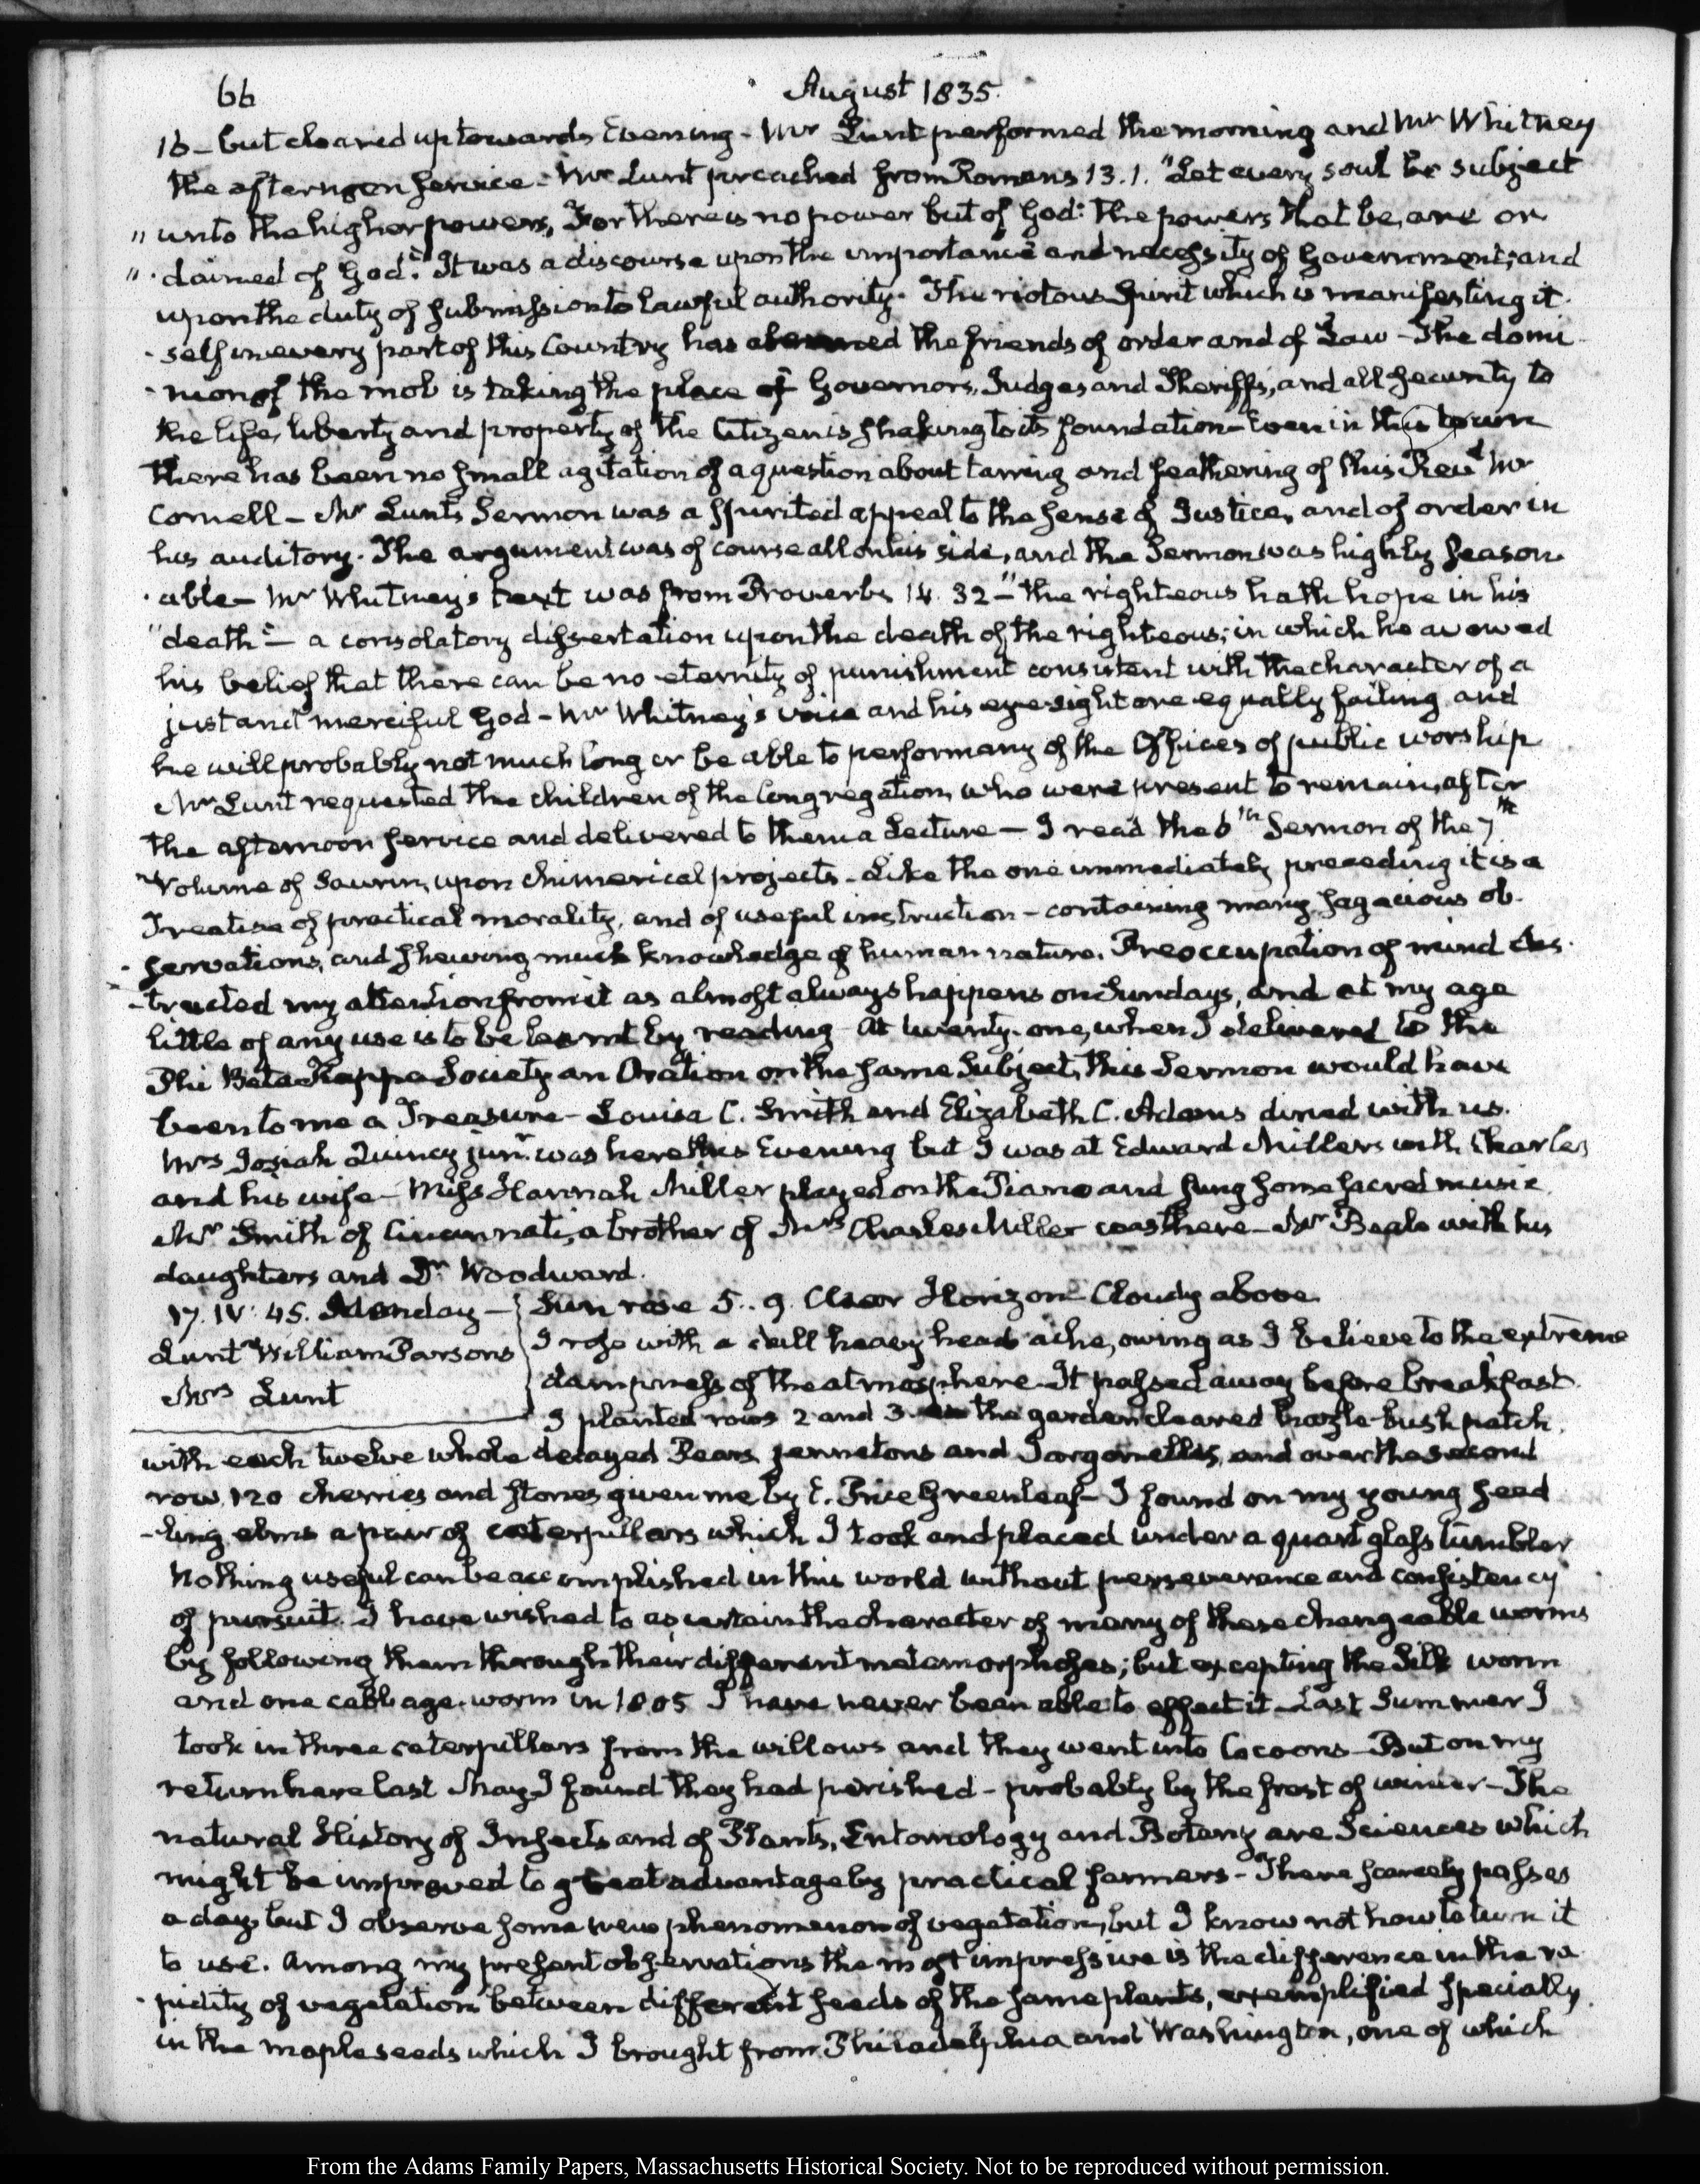 66 August 1835.
16 – but cleared up towards Evening – Mr Lunt performed the morning and Mr Whitney
the afternoon service – Mr Lunt preached from Romans 13.1. "Let every soul be subject
" unto the higher powers, For there is no power but of God: the powers that be, are or
" dained of God." It was a discourse upon the importance and necessity of Government; and
upon the duty of submission to lawful authority. The riotous Spirit which is manifesting it-
-self in every part of this Country has alarmed the friends of order and of Law – The domi-
-nion of the mob is taking the place of Governors, Judges and Sheriffs, and all security to
the life, liberty and property of the Citizen is shaking to its foundation – Even in this town
there has been no small agitation of a question about tarring and feathering of this Revd Mr
Cornell – Mr Lunt's Sermon was a spirited appeal to the sense of Justice, and of order in
his auditory. The argument was of course all on his side, and the Sermon was highly season-
-able – Mr Whitney's text was from Proverbs 14. 32 – "the righteous hath hope in his
"death" – a consolatory dissertation upon the death of the righteous; in which he avowed
his belief that there can be no eternity of punishment consistent with the character of a
just and merciful God – Mr Whitney's voice and his eyesight are equally failing and
he will probably not much longer be able to perform any of the Offices of public worship
Mr Lunt requested the children of the Congregation, who were present to remain, after
the afternoon service and delivered to them a Lecture – I read the 6th Sermon of the 7th
Volume of Saurin, upon chimerical projects – Like the one immediately preceding it is a
Treatise of practical morality, and of useful instruction – containing many sagacious ob-
-servations, and shewing much knowledge of human nature. Preoccupation of mind dis-
-tracted my attention from it as almost always happens on Sundays, and at my age
little of any use is to be learnt by reading – At twenty-one, when I delivered to the
Phi Beta Kappa Society an Oration on the same Subject, this Sermon would have
been to me a Treasure – Louisa C. Smith and Elizabeth C. Adams dined with us.
Mrs Josiah Quincy junr. was here this Evening but I was at Edward Miller's with Charles
and his wife – Miss Hannah Miller played on the Piano and sung some sacred music
Mr Smith of Cincinnati, a brother of Mrs Charles Miller was there – Mr Beale with his
daughters and Dr Woodward.
17. IV: 45. Monday – Sun rose 5..9. Clear Horizon – Cloudy above.
Lunt William Parsons I rose with a dull heavy head ache, owing as I believe to the extreme
Mrs Lunt dampness of the atmosphere – It passed away before breakfast.
I planted rows 2 and 3 the garden cleared hazle-bush patch,
with each twelve whole decayed Pears jennetons and Jargonelles, and over the second
row, 120 cherries and stones given me by E. Price Greenleaf – I found on my young seed
-ling elms a pair of caterpillars which I took and placed under a quart glass tumbler
Nothing useful can be accomplished in this world without perseverance and consistency
of pursuit. I have wished to ascertain the character of many of these changeable worms
by following them through their different metamorphoses; but excepting the Silk worm
and one cabbage-worm in 1805 I have never been able to effect it – Last Summer I
took in three caterpillars from the willows and they went into Cocoons – But on my
return here last May I found they had perished – probably by the frost of winter – The
natural History of Insects and of Plants, Entomology and Botany are Sciences which
might be improved to great advantage by practical farmers – There scarcely passes
a day but I observe some new phenomenon of vegetation, but I know not how to turn it
to use. Among my present observations the most impressive is the difference in the ra-
-pidity of vegetation between different seeds of the same plants, exemplified specially
in the maple seeds which I brought from Philadelphia and Washington, one of which
From the Adams Family Papers, Massachusetts Historical Society. Not to be reproduced without permission.